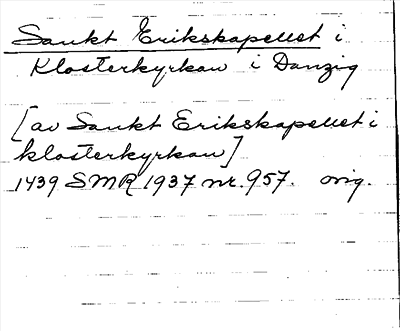 Sankt Erikskapellet i
Klosterkyrkan i Danzig
[av Sankt Erikskapellet i
klosterkyrkan]
1439 SMR 1937 nr. 957. orig.